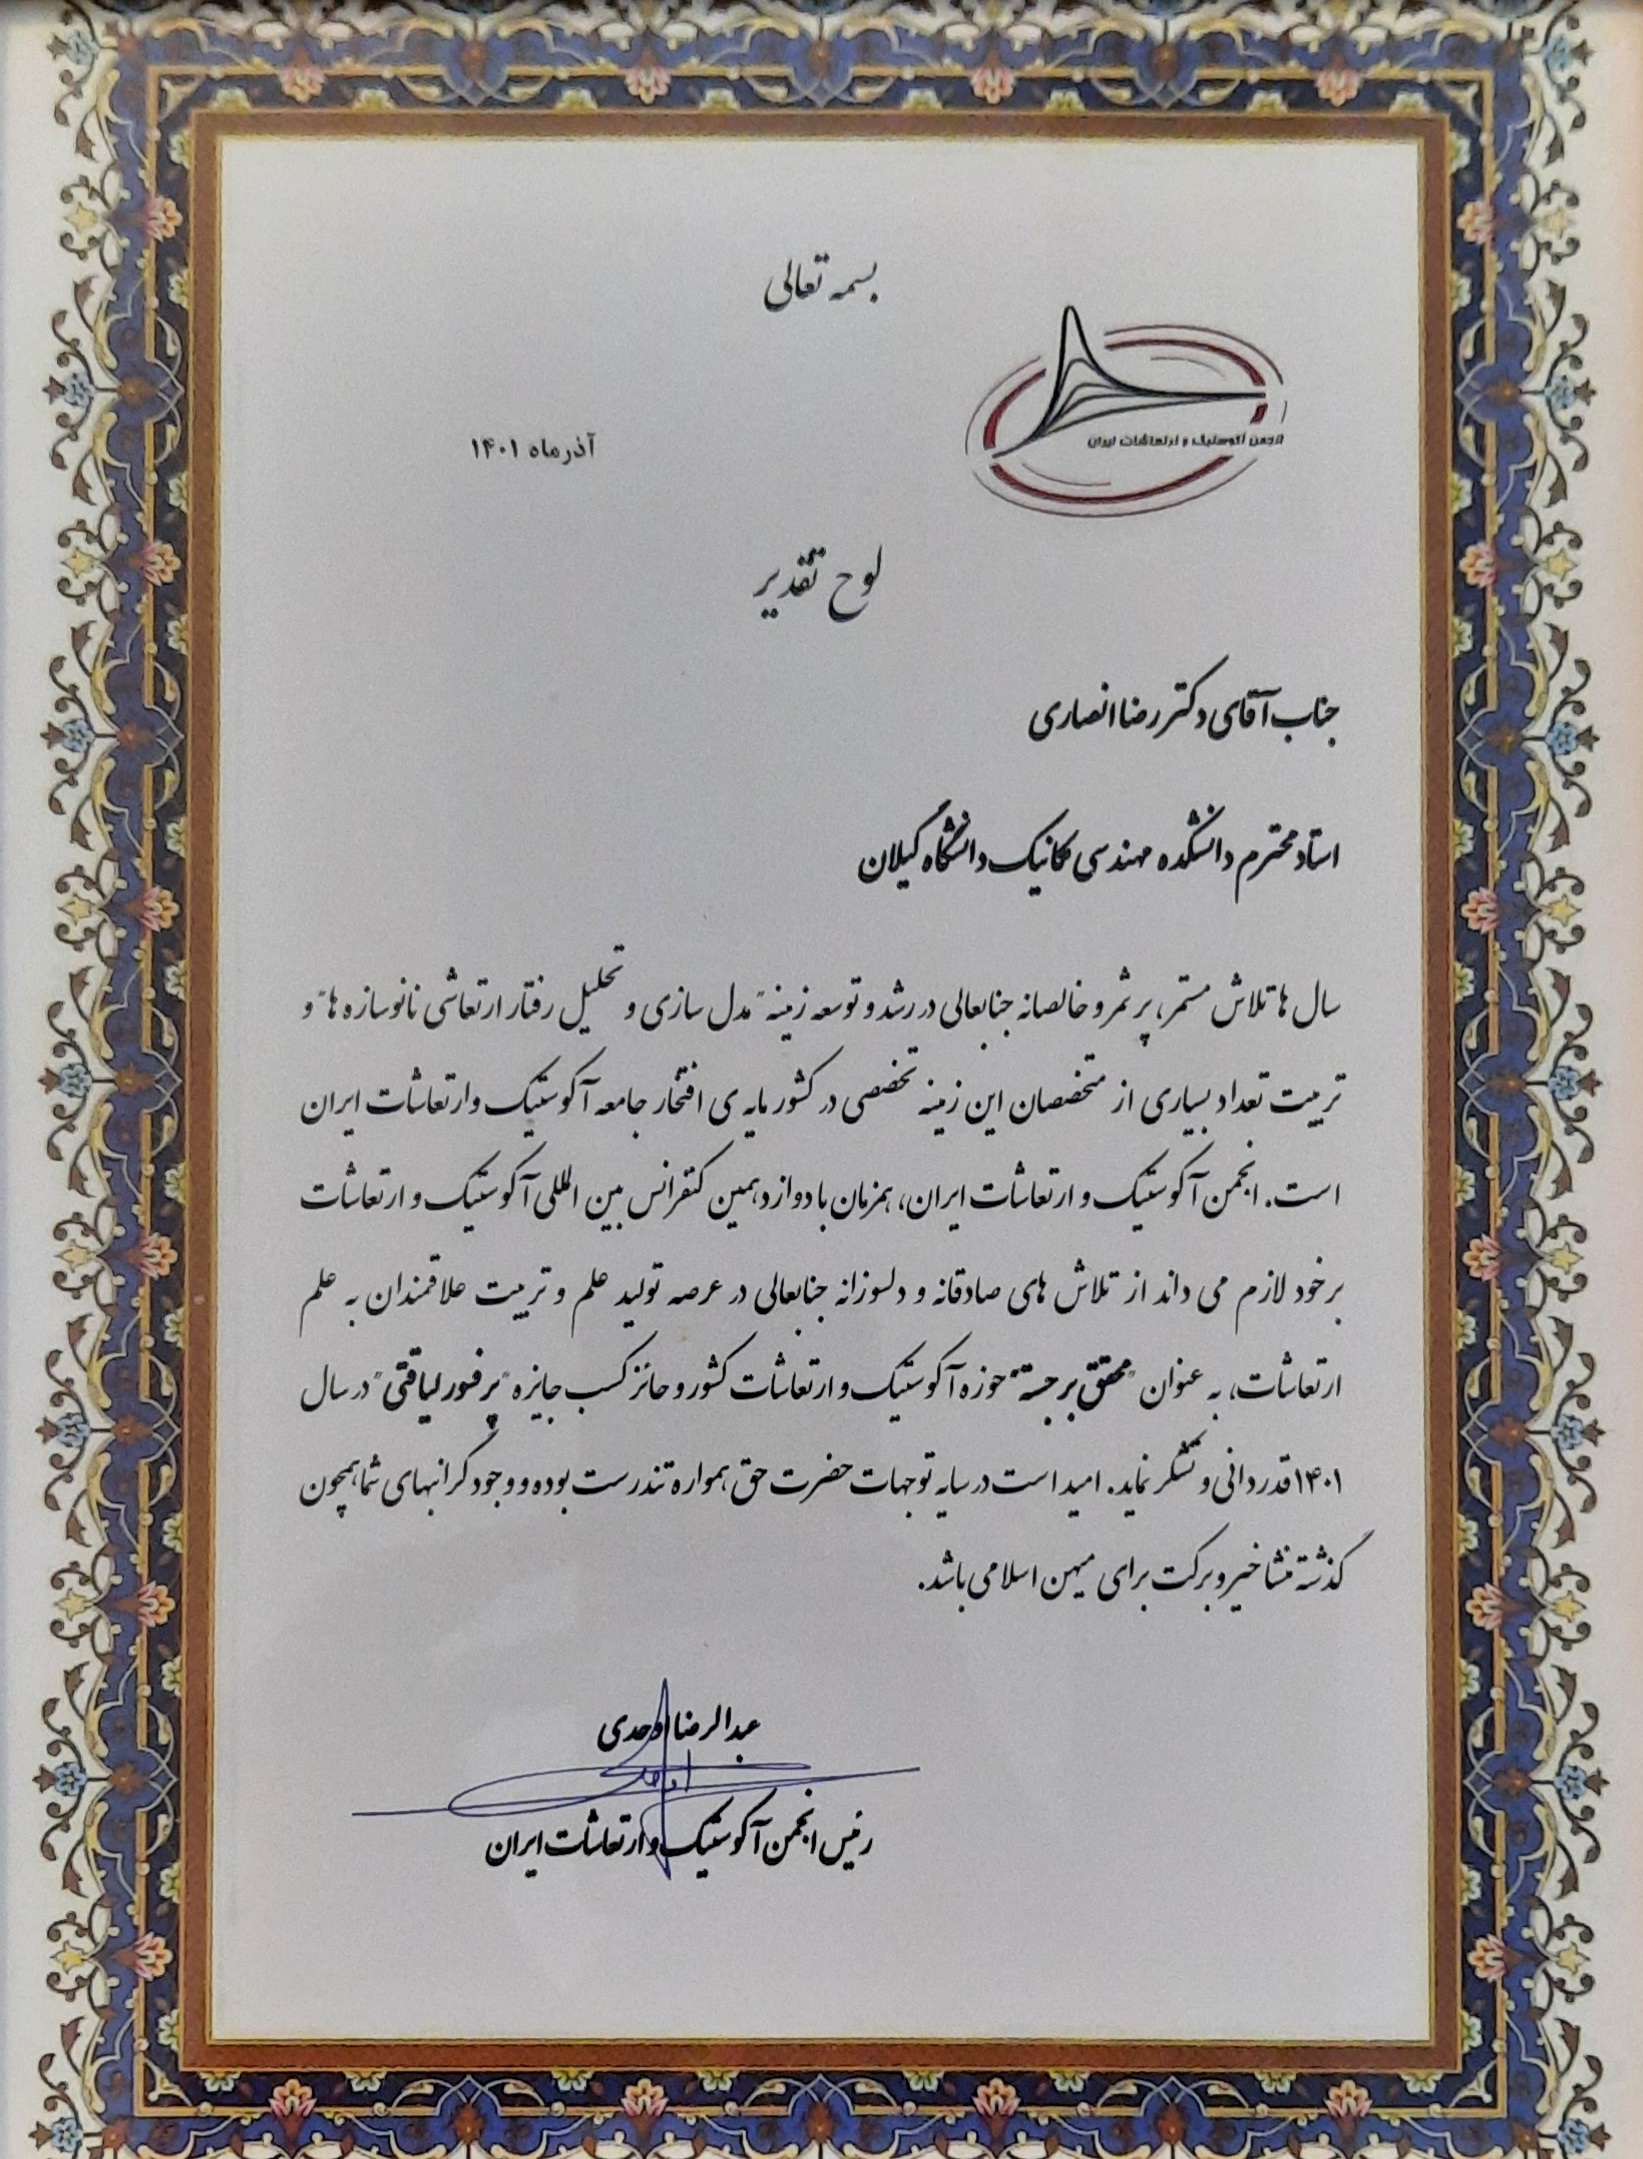 بسمه تعالی
انجمن آکوستیک و ارتعاشات ایران
آذر ماه ۱۴۰۱
لوح تقدیر
جناب آقای دکتر رضا انصاری
استاد محترم دانشکده مهندسی مکانیک دانشگاه گیلان
سال ها تلاش مستمر، پر ثمر و خالصانه جنابعالی در رشد و توسعه زمینه "مدل سازی و تحلیل رفتار ارتعاشی نانوسازه ها" و
تربیت تعداد بسیاری از متخصصان این زمینه تخصصی در کشور مایه ی افتخار جامعه آکوستیک و ارتعاشات ایران
است. انجمن آکوستیک و ارتعاشات ایران، همزمان با دوازدهمین کنفرانس بین المللی آکوستیک و ارتعاشات
برخود لازم می داند از تلاش های صادقانه و دلسوزانه جنابعالی در عرصه تولید علم و تربیت علاقمندان به علم
ارتعاشات، به عنوان "محقق برجسته" حوزه آکوستیک و ارتعاشات کشور و حائز کسب جایزه "پرفسور لیاقتی" در سال
۱۴۰۱ قدردانی و تشکر نماید. امید است در سایه توجهات حضرت حق همواره تندرست بوده و وجود گرانبهای شما همچون
گذشته منشا خیر و برکت برای میهن اسلامی باشد.
عبدالرضا اوحدی
رئیس انجمن آکوستیک و ارتعاشات ایران